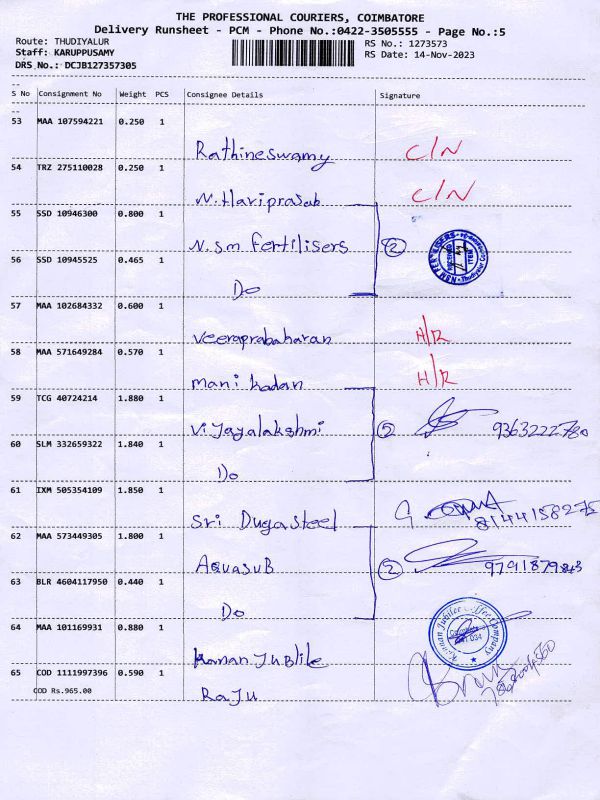 THE PROFESSIONAL COURIERS, COIMBATORE
Delivery Runsheet - PCM - Phone No.:0422-3505555 - Page No.:5
Route: THUDIYALUR
RS No.: 1273573
Staff: KARUPPUSAMY
RS Date: 14-Nov-2023
DRS No.: DCJB127357305
S No Consignment No Weight PCS Consignee Details Signature
53 MAA 107594221 0.250 1
Rathineswamy C/N
54 TRZ 275110028 0.250 1
N. Hariprasab C/N
55 SSD 10946300 0.800 1
N.sm fertilisers 2
56 SSD 10945525 0.465 1
Do
57 MAA 102684332 0.600 1
Veeraprabaharan H/R
58 MAA 571649284 0.570 1
Mani kadan H/R
59 TCG 40724214 1.880 1
Vijayalakshmi 2 9363222780
60 SLM 332659322 1.840 1
Do
61 IXM 505354109 1.850 1
Sri Dugasteel 8144158275
62 MAA 573449305 1.800 1
AquasuB 2 9791879843
63 BLR 4604117950 0.440 1
Do
64 MAA 101169931 0.880 1
Kanan Jublile
65 COD 1111997396 0.590 1
COD Rs.965.00
Raju